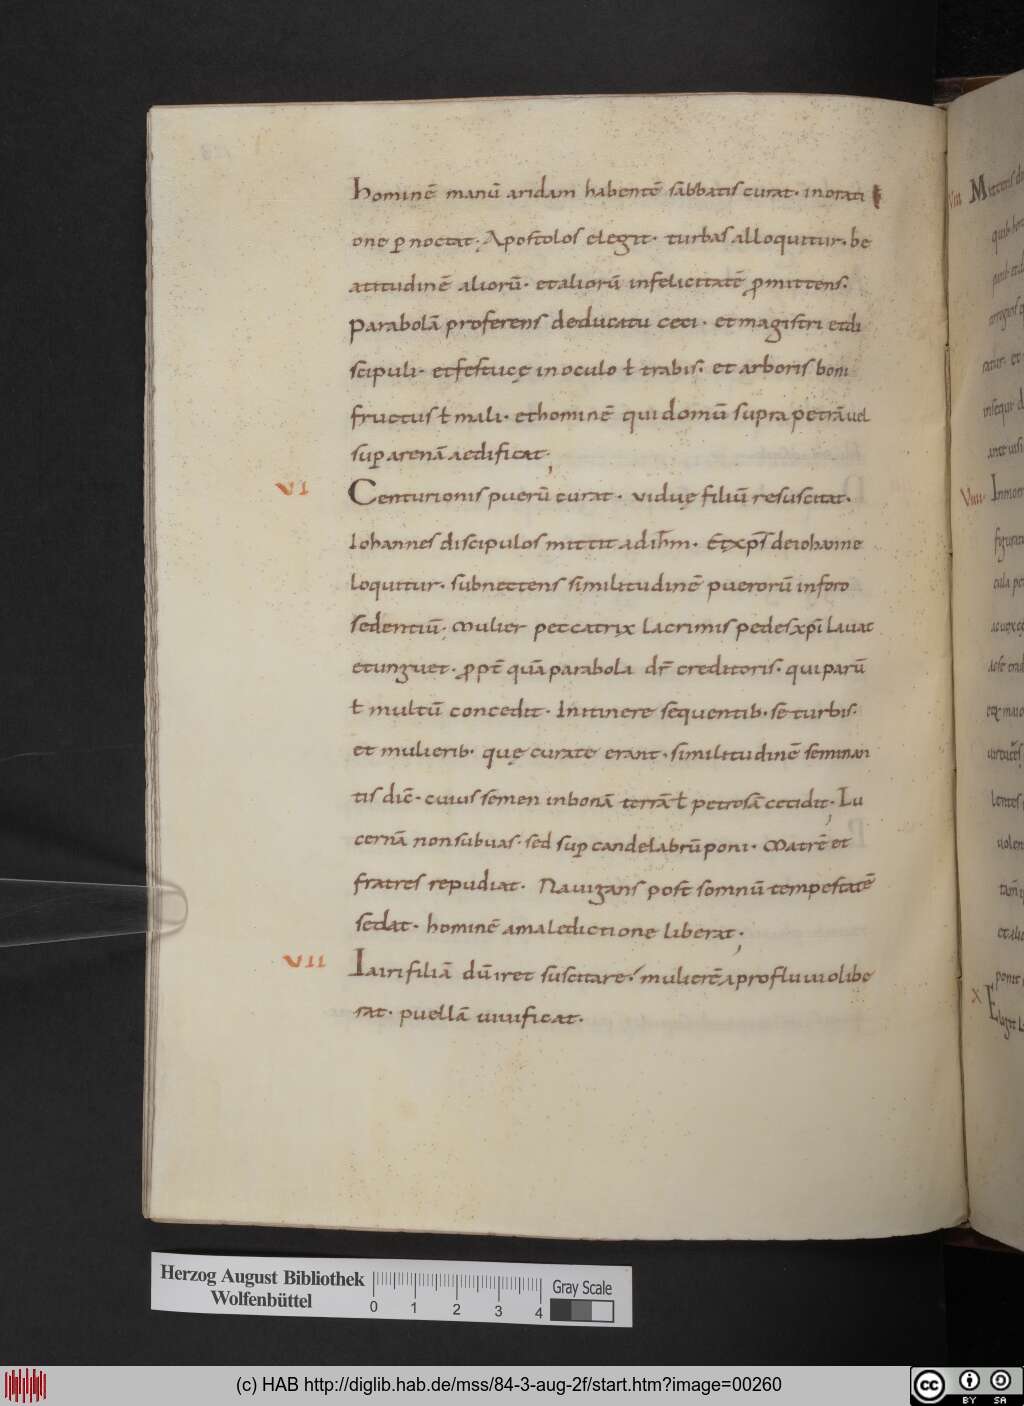 hominē manū aridam habentē sabbatis curat· inorati
one ꝑnoctat· Apostolos elegit· turbas alloquitur· be
atitudinē aliorū· et aliorū infelicitatē ꝓmittens·
Parabolā proferens deducatu ceci· et magistri et di
scipuli· et festucę in oculo ł trabis· et arboris boni
fructus ł mali· et hominē qui domū supra petrā uel
suꝑ arenā aedificat;
VI Centurionis puerū curat· viduę filiū resuscitat·
Iohannes discipulos mittit ad ihm̄· Et xp̄s de iohanne
loquitur· subnectens similitudinē puerorū in foro
sedentiū· Mulier peccatrix lacrimis pedes xp̄i lauat
et unguet· ꝓpt̄ quā parabola dr̄ creditoris· qui parū
ł multū concedit· In itinere sequentib· se turbis·
et mulierib· quę curate erant· similitudinē seminan
tis dic̄· cuius semen in bonā terrā ł petrosā cecidit; Lu
cernā non sub uas· sed suꝑ candelabrū poni· Matrē et
fratres repudiat· Nauigans post somnū tempestatē
sedat· hominē a maledictione liberat;
VII Iairi filiā dū iret suscitare· mulierē a profluuio libe
rat· puellā uiuificat·
VIII Mittens
VIIII In mon
X Elegit
Herzog August Bibliothek
Wolfenbüttel
0 1 2 3 4
Gray Scale
(c) HAB http://diglib.hab.de/mss/84-3-aug-2f/start.htm?image=00260
cc BY SA